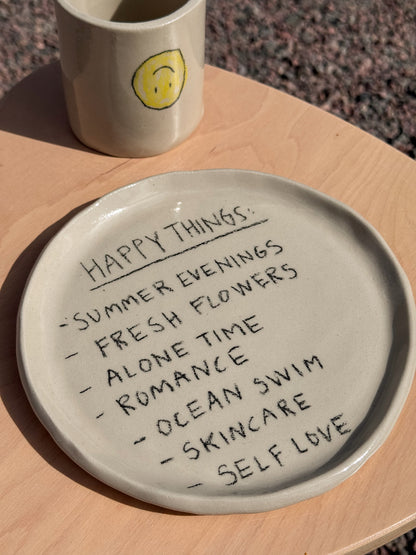 HAPPY THINGS:
- SUMMER EVENINGS
- FRESH FLOWERS
- ALONE TIME
- ROMANCE
- OCEAN SWIM
- SKINCARE
- SELF LOVE